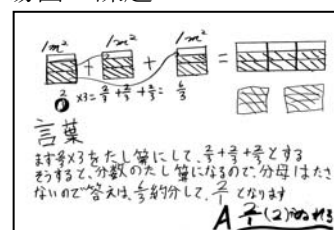 1m² 1m² 1m²
+ + =
2/3 ×3= 2/3 + 2/3 + 2/3 = 6/3
言葉
まず2/3×3をたし算にして、2/3+2/3+2/3とする
そうすると、分数のたし算になるので、分母はたさ
ないので答えは、6/3約分して、2/1となります
A 2/1(2)